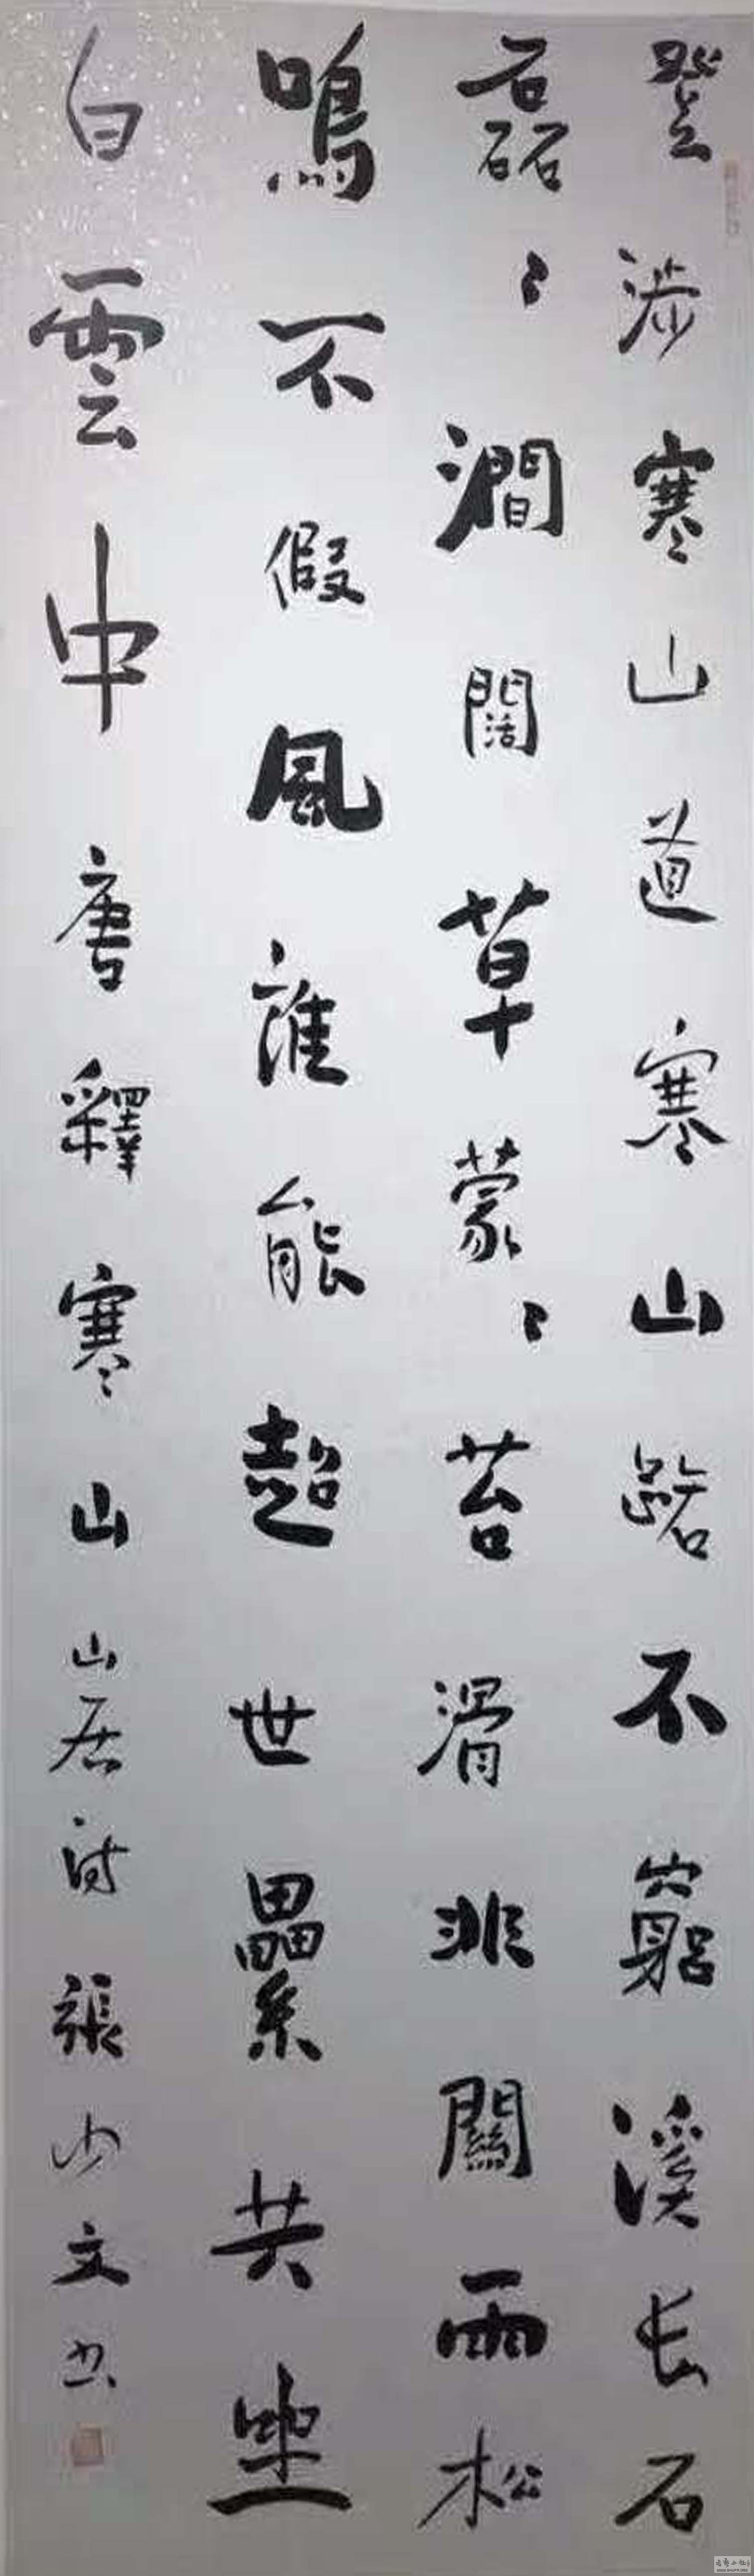 登涉寒山道寒山路不窮溪长石
磊々澗闊草蒙々苔滑非關雨松
鳴不假風誰能超世累共坐
白雲中唐釋寒山山居詩張少文书